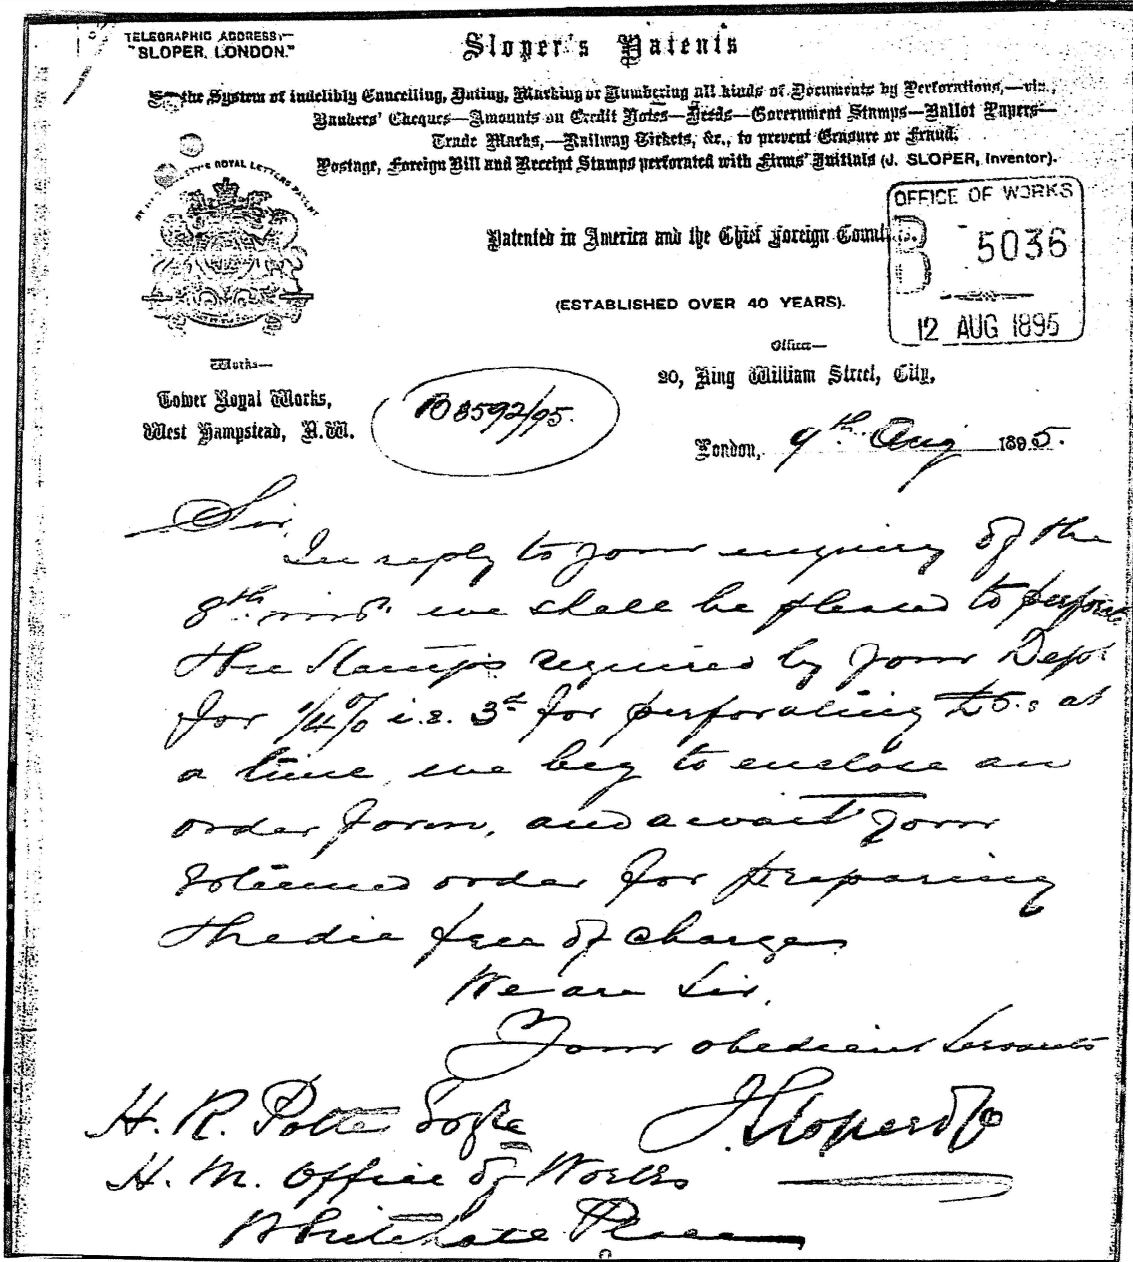 TELEGRAPHIC ADDRESS:—
"SLOPER, LONDON."
Sloper's Patents
the System of indelibly Cancelling, Dating, Marking or Numbering all kinds of Documents by Perforations,—viz.,
Bankers' Cheques—Amounts on Credit Notes—Deeds—Government Stamps—Ballot Papers—
Trade Marks,—Railway Tickets, &c., to prevent Erasure or Fraud.
Postage, Foreign Bill and Receipt Stamps perforated with Firms' Initials (J. SLOPER, Inventor).
ROYAL LETTERS PATENT
OFFICE OF WORKS
B 5036
12 AUG 1895
Patented in America and the Chief Foreign
(ESTABLISHED OVER 40 YEARS).
Works—
Tower Royal Works,
West Hampstead, N.W.
8592/95.
Office—
20, King William Street, City,
London, 9th Aug 1895.
Sir,
In reply to your enquiry of the
8th inst. we shall be pleased to perforate
the Stamps required by your Dept
for 1/4 % i.e. 3d for perforating £5.s at
a time, we beg to enclose an
order form, and await your
esteemed order for preparing
the die free of charge
We are Sir,
Your obedient Servants
J. Sloper & Co
H. R. Potter Esqre
H. M. Office of Works
Whitehall Place